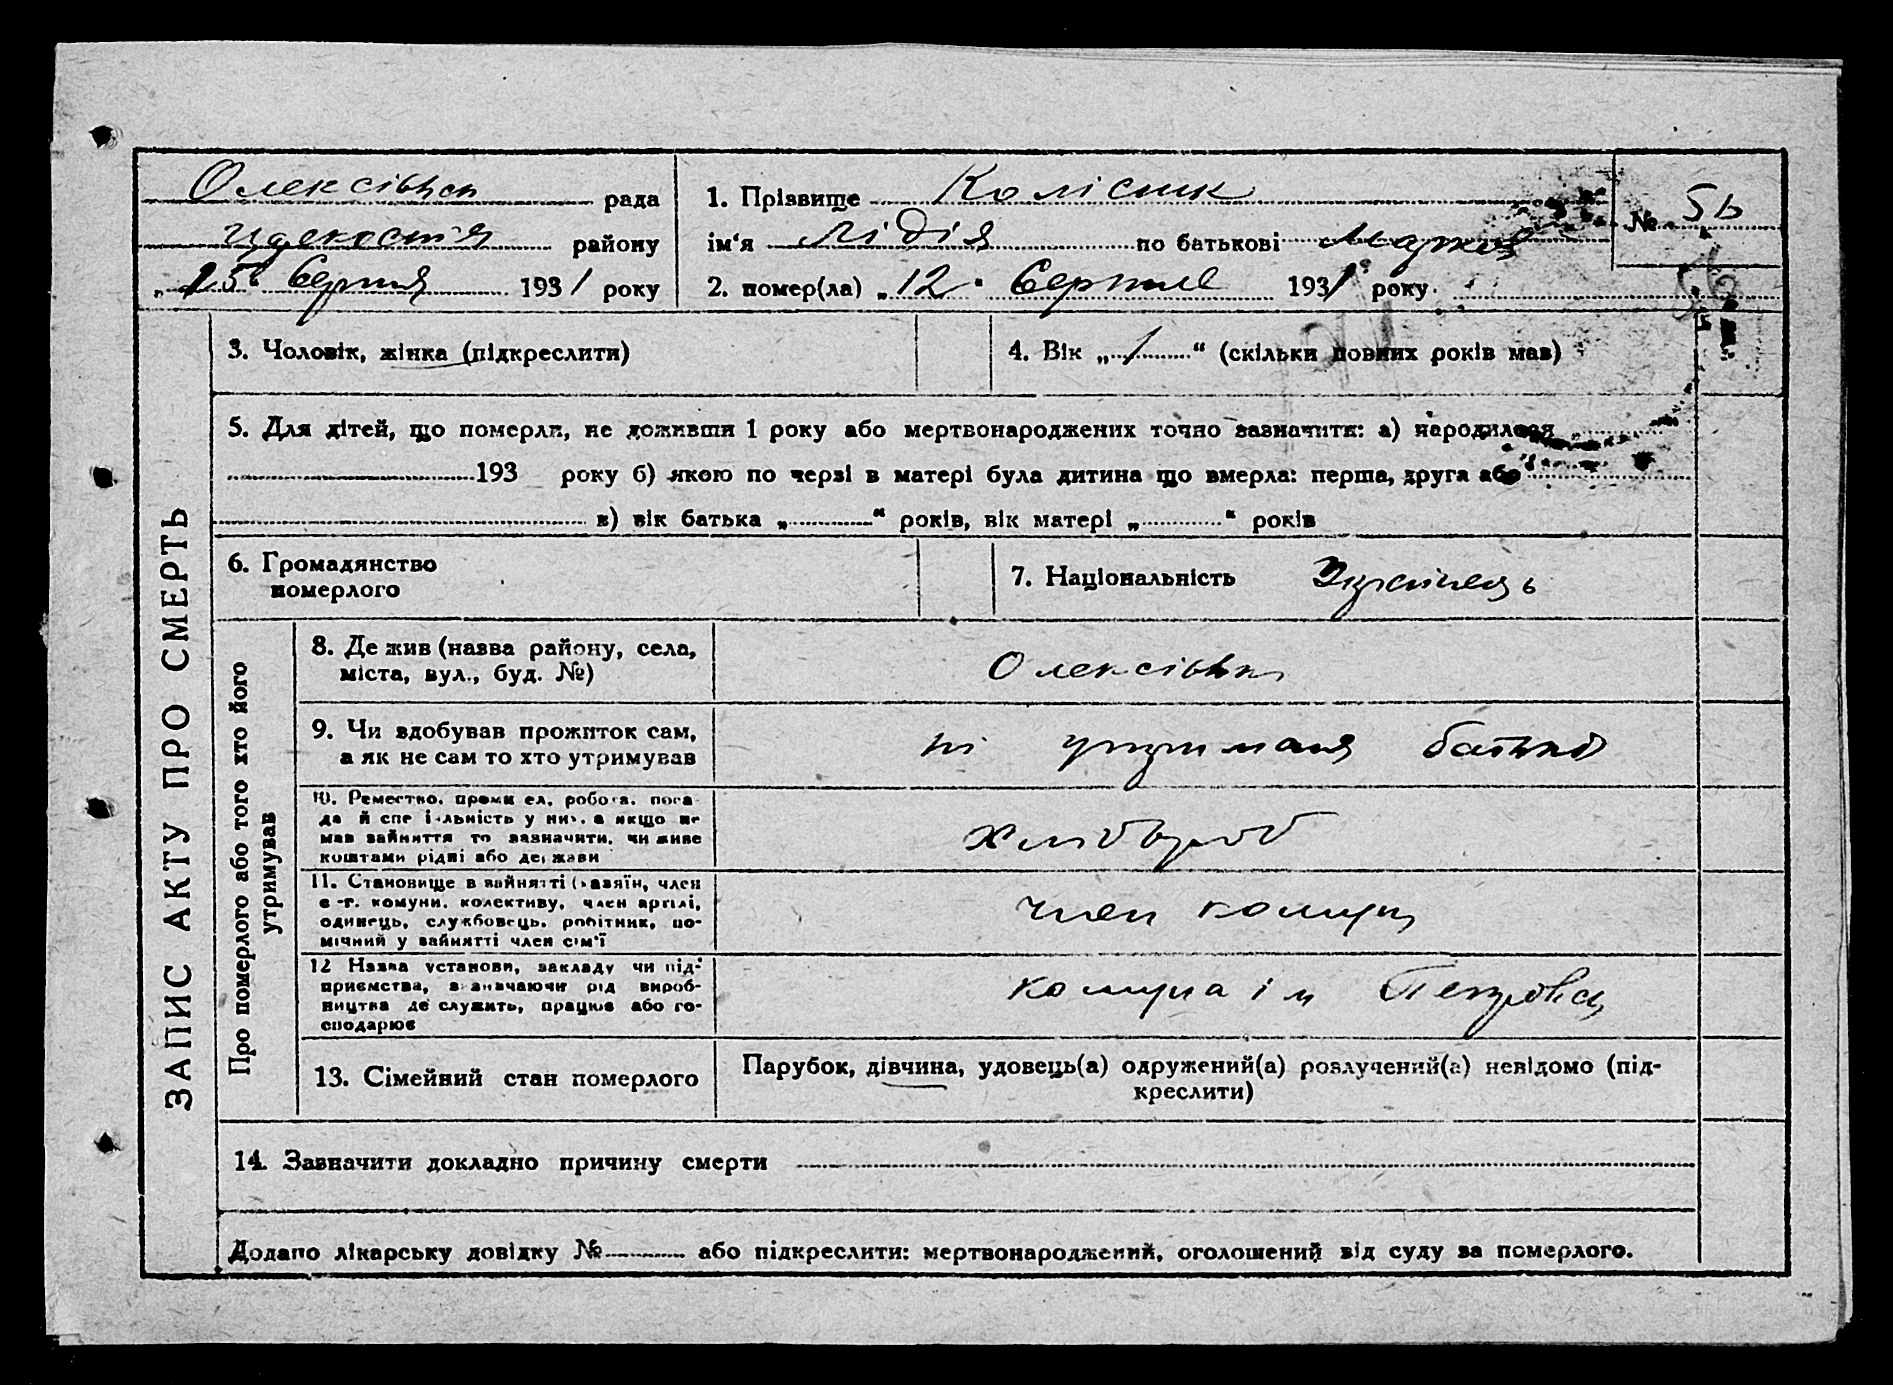 Олексівка рада
району
„15“ Серпня 1931 року
1. Прізвище Колісник
ім‘я Лідія по батькові
2. помер(ла) „12“ Серпня 1931 року
№ 56
ЗАПИС АКТУ ПРО СМЕРТЬ
3. Чоловік, жінка (підкреслити)
4. Вік „1“ (скільки повних років мав)
5. Для дітей, що померли, не доживши 1 року або мертвонароджених точно зазначити: а) народилося
193 року б) якою по черзі в матері була дитина що вмерла: перша, друга або
в) вік батька „ “ років, вік матері „ “ років
6. Громадянство
померлого
7. Національність Українець
Про померлого або того хто його
утримував
8. Де жив (назва району, села,
міста, вул., буд. №)
Олексівка
9. Чи здобував прожиток сам,
а як не сам то хто утримував
ні утримання батька
10. Ремество, промисел, робота, поса-
да й спеціяльність у них, а якщо не
мав зайняття то зазначити, чи живе
коштами рідні або держави
Хлібороб
11. Становище в зайнятті (хазяїн, член
с.-г. комуни, колективу, член артілі,
одинець, службовець, робітник, по-
мічний у зайнятті член сім‘ї
член комуни
12 Назва установи, закладу чи під-
приємства, зазначаючи рід вироб-
ництва де служить, працює або го-
сподарює
комуна ім Петровск
13. Сімейний стан померлого
Парубок, дівчина, удовець(а) одружений(а) розлучений(а) невідомо (під-
креслити)
14. Зазначити докладно причину смерти
Додано лікарську довідку № або підкреслити: мертвонароджений, оголошений від суду за померлого.